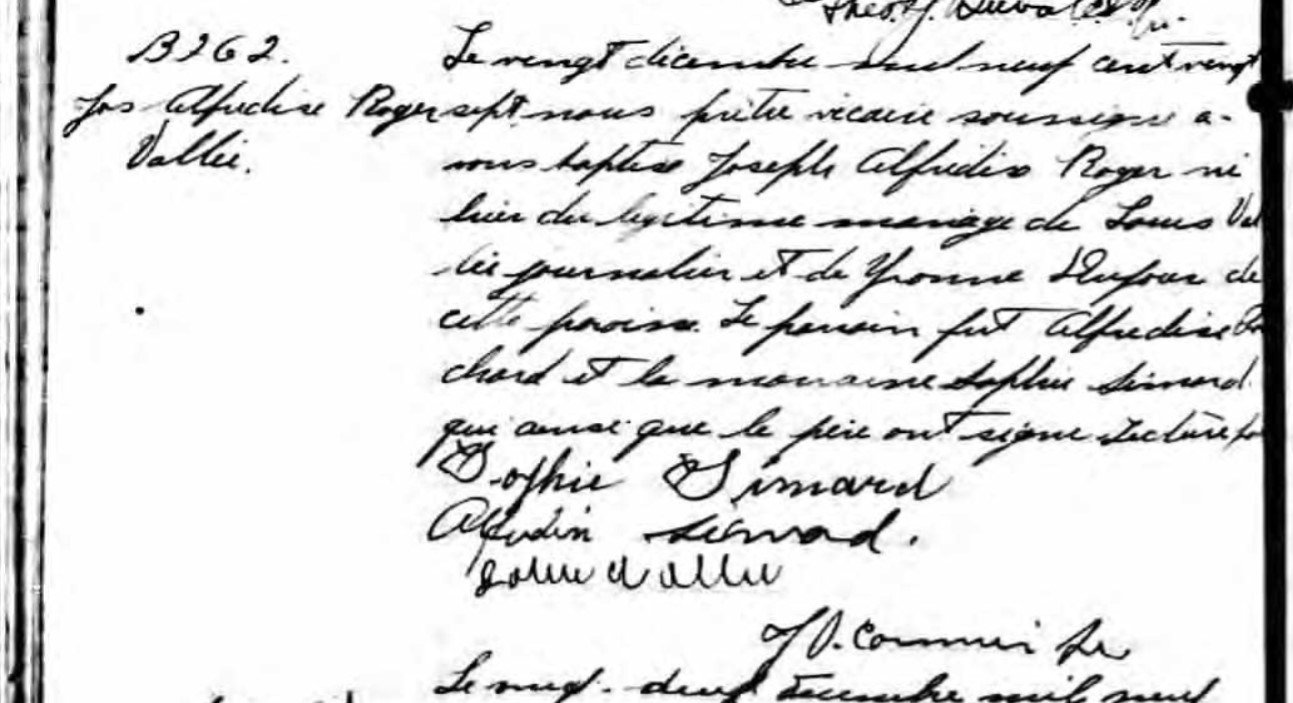 B262.
Jos Alfredise Roger
Vallée.
Le vingt décembre mil neuf cent vingt
sept nous prêtre vicaire soussigné a-
vons baptisé Joseph Alfredise Roger né
hier du légitime mariage de Louis Val
lée journalier et de Yvonne Dufour de
cette paroisse. Le parrain fut Alfredise
chard et la marraine Sophie Simard
qui ainsi que le père ont signé. Lecture
Sophie Simard
Simard.
Vallée
Ptre
Le vingt-deux décembre mil neuf